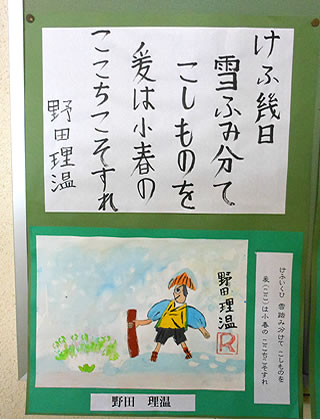 けふ幾日
雪ふみ分て
こしものを
爰は小春の
ここちこそすれ
野田理温
野田理温
R
けふいくひ 雪踏み分けて こしものを
爰(ここ)は小春の ここちこそすれ
野田 理温